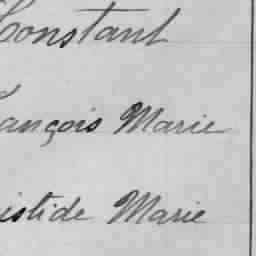 Constant
ançois Marie
istide Marie